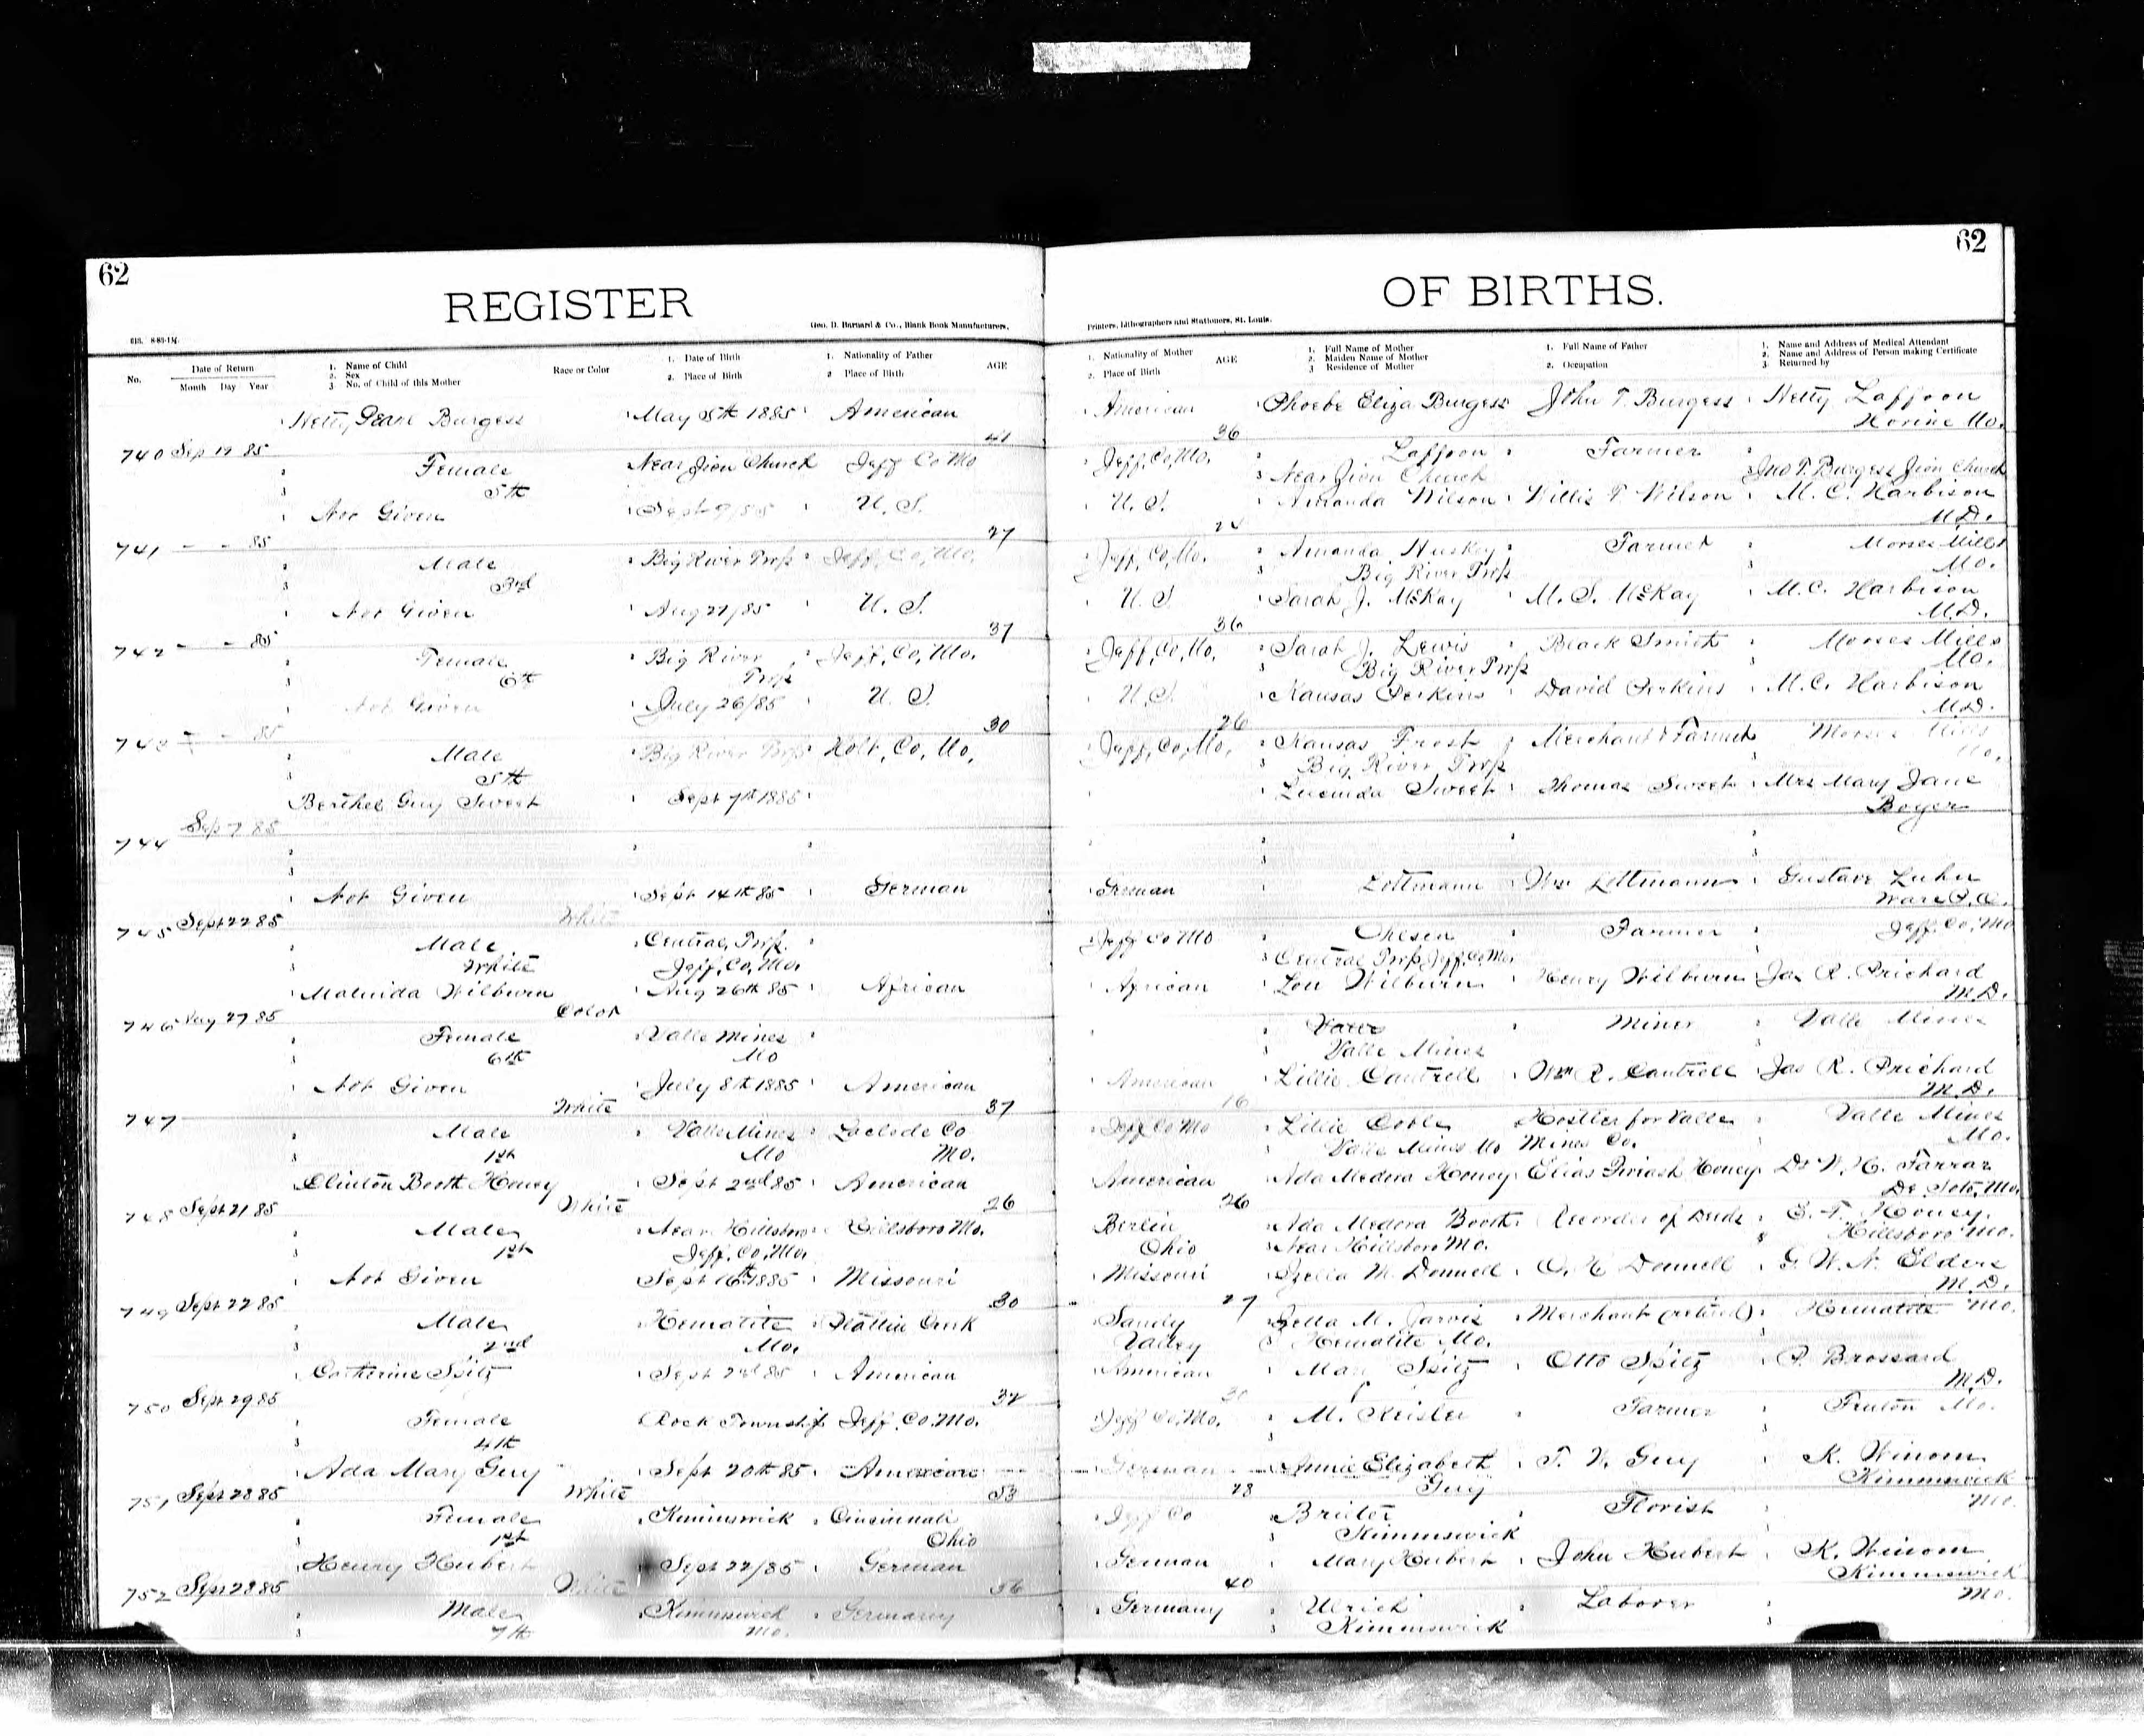 62
62
REGISTER
OF BIRTHS.
Geo. D. Barnard & Co., Blank Book Manufacturers,
Printers, Lithographers and Stationers, St. Louis.
No. Date of Return Month Day Year 1. Name of Child 2. Sex 3 No. of Child of this Mother Race or Color 1. Date of Birth 2. Place of Birth 1. Nationality of Father 2 Place of Birth AGE 1. Nationality of Mother 2. Place of Birth AGE 1. Full Name of Mother 2. Maiden Name of Mother 3 Residence of Mother 1. Full Name of Father 2. Occupation 1. Name and Address of Medical Attendant 2. Name and Address of Person making Certificate 3. Returned by
Netty Pearl Burgess May 8th 1885 American American Phoebe Eliza Burgess John T. Burgess Netty Laffoon
41 36 Horine Mo.
740 Sep 19 85 Female Near Zion Church Jeff Co Mo Jeff, Co, Mo. Laffoon Farmer
5th Near Zion Church Jno T. Burgess Zion Church
Not Given Sept 9/85 U. S. U. S. Amanda Wilson Willis T Wilson M. C. Harbison
27 24 M.D.
741 - - 85 Male Big River Twp Jeff, Co, Mo. Jeff, Co, Mo. Amanda Huskey Farmer Morses Mills
3rd Big River Twp Mo.
Not Given Aug 27/85 U. S. U. S Sarah J. McKay M. S. McKay M. C. Harbison
37 36 M.D.
742 - - 85 Female Big River Jeff, Co, Mo. Jeff, Co, Mo. Sarah J. Lewis Black Smith Morses Mills
6th Twp Big River Twp Mo.
Not Given July 26/85 U. S. U. S. Kansas Perkins David Perkins M. C. Harbison
30 26 M.D.
743 - - 85 Male Big River Twp Holt, Co, Mo, Jeff, Co, Mo, Kansas Frost Merchant & Farmer Morses Mills
5th Big River Twp Mo.
Berthel Guy Sweet Sept 7th 1885 Lucinda Sweet Thomas Sweet Mrs Mary Jane
Boyer
744 Sep 7 85
Not Given Sept 14th 85 German German Lottmann Wm Lottmann Gustave Luhn
White Ware P.O.
745 Sept 22 85 Male Central, Twp. Jeff Co Mo Ohlsen Farmer Jeff, Co, Mo
White Jeff, Co, Mo. Central Twp Jeff, Co, Mo.
Malinida Wilburn Aug 26th 85 African African Lou Wilburn Henry Wilburn Jas R. Prichard
Color M.D.
746 27 85 Female Valle Mines Miner Valle Mines
6th Mo Valle Mines
Not Given July 8th 1885 American American Lillie Cantrell Wm R. Cantrell Jas R. Prichard
White 37 16 M.D.
747 Male Valle Mines Laclede Co Jeff Co Mo Lillie Coble Hostler for Valle Valle Mines
1st Mo Mo. Valle Mines Mo Mines Co. Mo.
Clinton Booth Honey Sept 2nd 85 American American Ada Medora Honey Elias Honey Dr W. H. Farrar
White 26 26 De Soto, Mo.
748 Sept 21 85 Male Near Hillsboro Hillsboro Mo. Berlin Ada Medora Booth Recorder of Deeds E. F. Honey.
1st Jeff, Co, Mo. Ohio Near Hillsboro Mo. Hillsboro Mo.
Not Given Sept 16th 1885 Missouri Missouri M. Donnell O. H Donnell G. W. N. Elders
30 27 M.D.
749 Sept 22 85 Male Hematite Plattin Creek Sandy M. Jarvis Merchant (retired) Hematite Mo.
2nd Mo. Valley Hematite Mo.
Catherine Spitz Sept 2nd 85 American American Mary Spitz Otto Spitz P. Brossard
32 M.D.
750 Sept 29 85 Female Rock Township Jeff, Co. Mo. Jeff Co, Mo. M. Keisler Farmer Fenton Mo.
4th
Ada Mary Guy Sept 20th 85 American German Annie Elizabeth T. W. Guy K. Winom
White 53 28 Guy Kimmswick
751 Sept 28 85 Female Kimmswick Cincinnati Jeff Co Florist Mo.
1st Ohio Kimmswick
Henry Hubert Sept 22/85 German German Mary Hubert John Hubert K. Winom
White 56 40 Kimmswick
752 Sept 28 85 Male Kimmswick Germany Germany Ulrich Laborer Mo.
7th Mo. Kimmswick